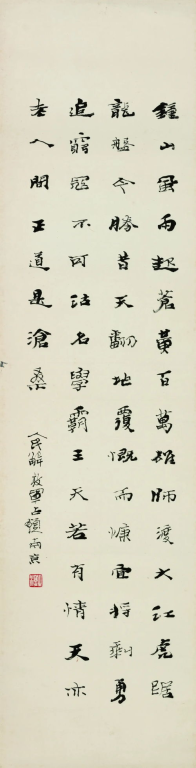 鐘山風雨起蒼黃百萬雄師渡大江虎踞
龍盤今勝昔天翻地覆慨而慷宜將剩勇
追窮寇不可沽名學霸王天若有情天亦
老人間正道是滄桑
人民解放軍占領南京